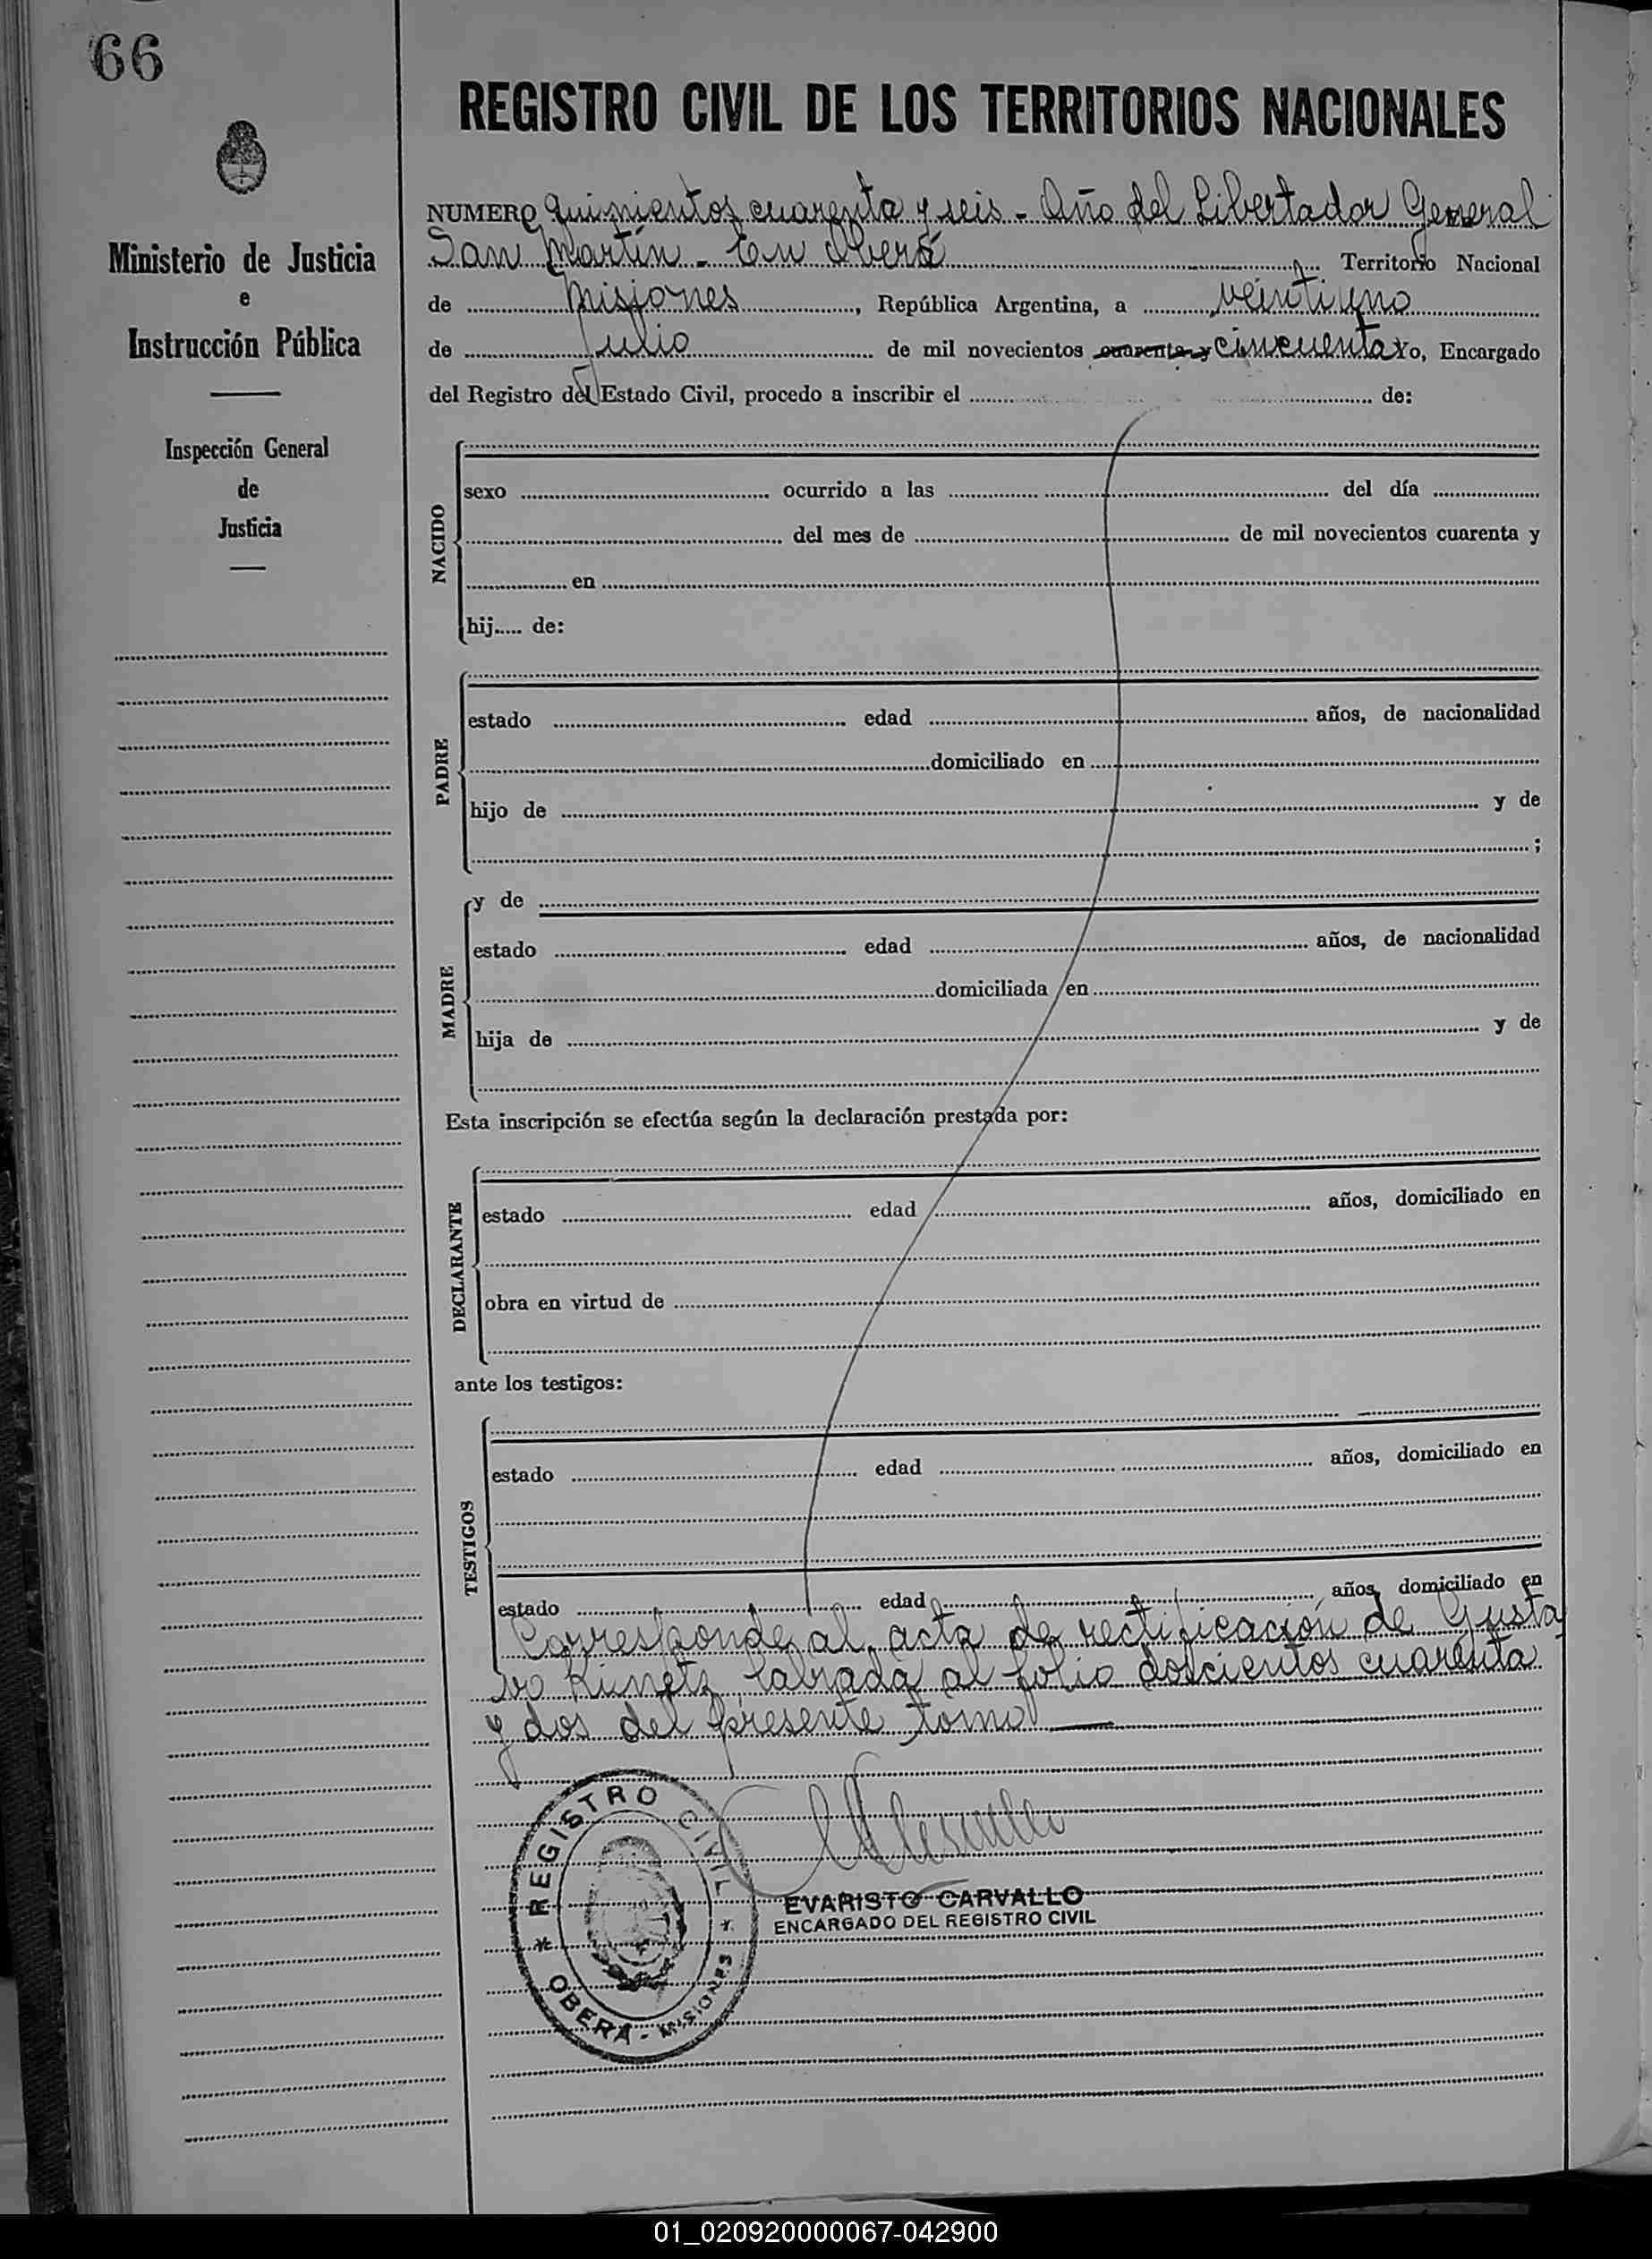 66
REGISTRO CIVIL DE LOS TERRITORIOS NACIONALES
Ministerio de Justicia
e
Instrucción Pública
Inspección General
de
Justicia
NUMERO quinientos cuarenta y seis - Año del Libertador General
San Martín - En Oberá Territorio Nacional
de Misiones, República Argentina, a veintiuno
de julio de mil novecientos cuarenta y cincuenta Yo, Encargado
del Registro del Estado Civil, procedo a inscribir el de:
NACIDO
sexo ocurrido a las del día
del mes de de mil novecientos cuarenta y
en
hij..... de:
PADRE
estado edad años, de nacionalidad
domiciliado en
hijo de y de
;
MADRE
y de
estado edad años, de nacionalidad
domiciliada en
hija de y de
Esta inscripción se efectúa según la declaración prestada por:
DECLARANTE
estado edad años, domiciliado en
obra en virtud de
ante los testigos:
TESTIGOS
estado edad años, domiciliado en
estado edad años, domiciliado en
Corresponde al acta de rectificación de Gusta
vo Kunetz, labrada al folio doscientos cuarenta
y dos del presente tomo
REGISTRO CIVIL
OBERÁ - MISIONES
EVARISTO CARVALLO
ENCARGADO DEL REGISTRO CIVIL
01_020920000067-042900